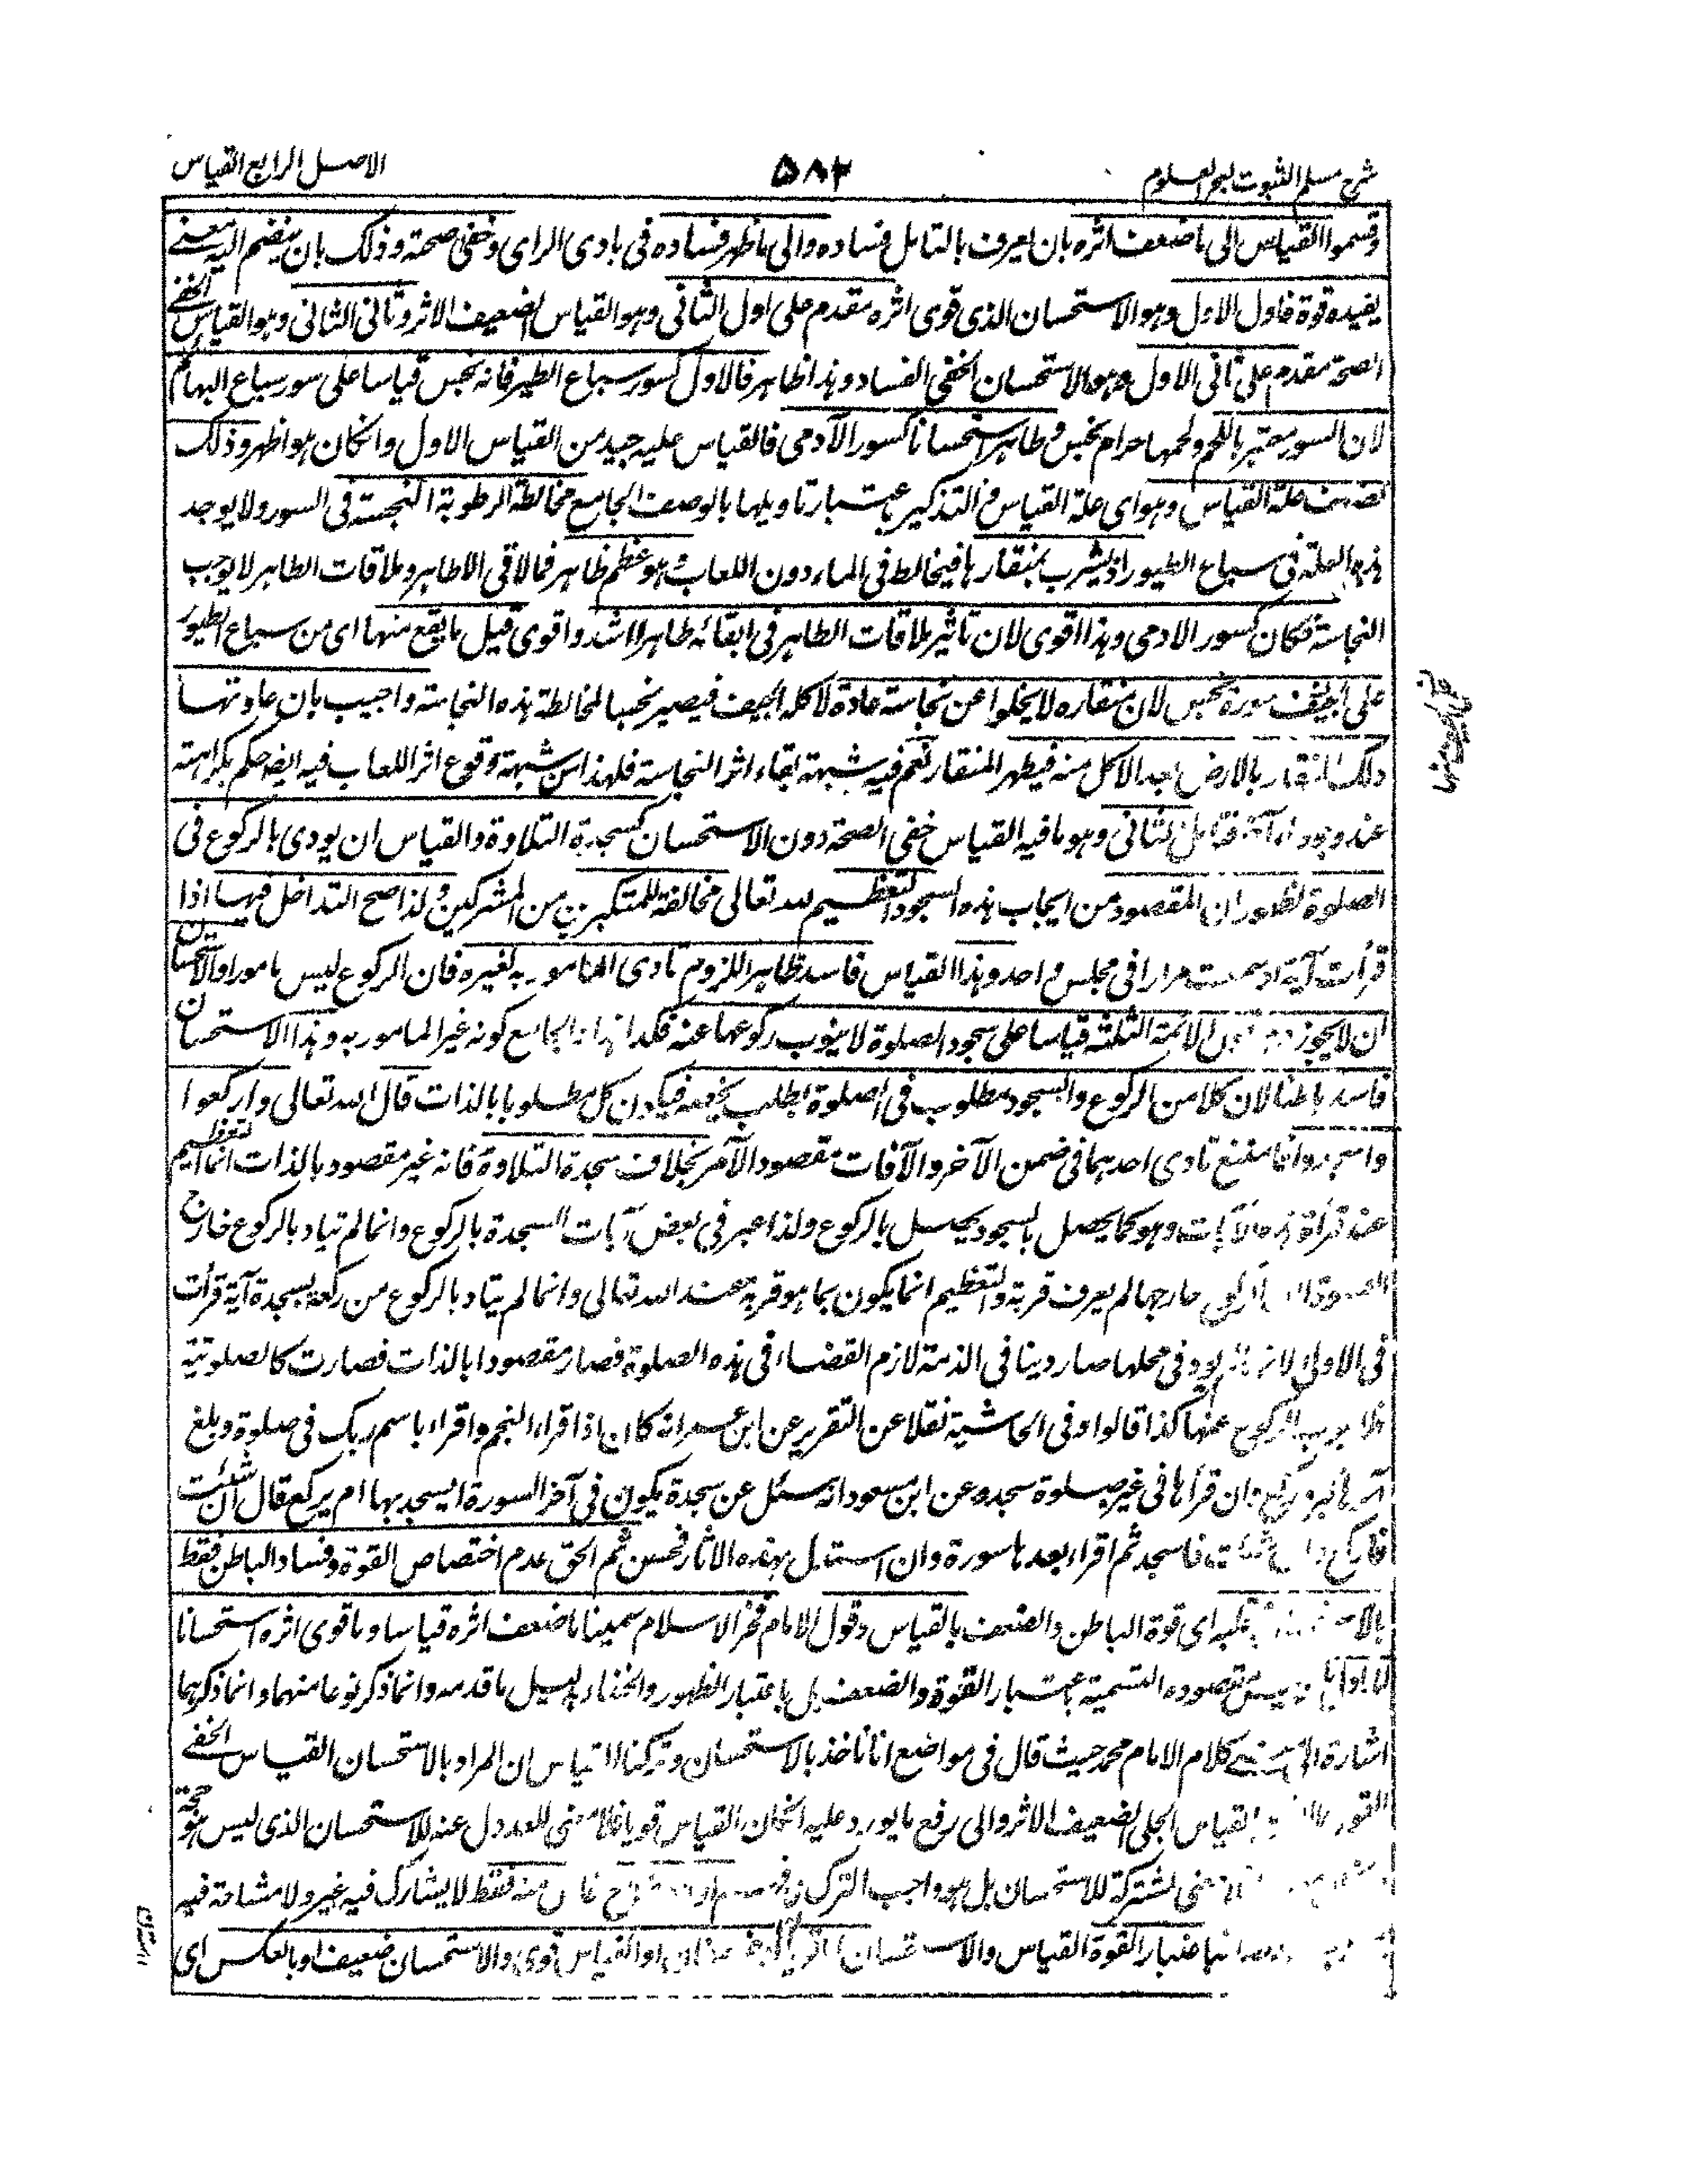 شرح مسلم الثبوت لبحر العلوم
٥٨٢
الاصل الرابع القياس
وقسموا القياس الى ما ضعف اثره بان يعرف بالتامل فساده والى ما ظهر فساده فى بادى الراى وخفى صحته وذلك بان ينضم اليه معنى
يفيده قوة فاول الاول وهو الاستحسان الذى قوى اثره مقدم على اول الثانى وهو القياس الضعيف الاثر وثانى الثانى وهو القياس الخفى
الصحة مقدم على ثانى الاول وهو الاستحسان الخفى الفساد وهذا ظاهر فالاول كسور سباع الطير فانه نجس قياسا على سور سباع البهائم
لان السور معتبر باللحم ولحمها حرام نجس وطاهر استحسانا كسور الآدمى فالقياس عليه جيد من القياس الاول وانكان هو اظهر وذلك
لضعف علة القياس وهو اى علة القياس والتذكير باعتبار تاويلها بالوصف الجامع مخالطة الرطوبة النجسة فى السور ولا يوجد
هذه العلة فى سباع الطيور اذ يشرب بمنقارها فيخالط فى الماء دون اللعاب وهو عظم طاهر فما لاقى الا طاهر وملاقات الطاهر لا يوجب
النجاسة فكان كسور الادمى وهذا اقوى لان تاثير ملاقات الطاهر فى ابقائه طاهرا اشد واقوى قيل ما يقع منها اى من سباع الطيور
على الجيف سوره نجس لان منقاره لا يخلوا عن نجاسة عادة لاكله الجيف فيصير نجسا لمخالطة هذه النجاسة واجيب بان عادتها
دلك المنقار بالارض بعد الاكل منه فيطهر المنقار نعم فيه شبهة بقاء اثر النجاسة فلهذا من شبهة وقوع اثر اللعاب فيه ايضا حكم بكراهته
عند وجود الثانى وهو ما فيه القياس خفى الصحة دون الاستحسان كسجدة التلاوة والقياس ان يودى بالركوع فى
الصلوة لظهور ان المقصود من ايجاب هذه السجود التعظيم لله تعالى مخالفة للمتكبرين من المشركين ولذا صح التداخل فيها اذا
قرأت آية او سمعت مرارا فى مجلس واحد وهذا القياس فاسد ظاهر للزوم تادى المامور به لغيره فان الركوع ليس مامورا والاستحسان
ان لا يجوز الائمة الثلثه قياسا على سجود الصلوة لا ينوب ركوعها عنه فكذا الجامع كونه غير المامور به وهذا الاستحسان
فاسد باطنا لان كلا من الركوع والسجود مطلوب فى الصلوة بطلب يخصه فيكون كل مطلوبا بالذات قال الله تعالى واركعوا
واسجدوا فامتنع تادى احدهما فى ضمن الآخر والا فات مقصود الآمر بخلاف سجدة التلاوة فانه غير مقصود بالذات انما التعظيم
عند قرأة الآيات وهو كما يحصل بالسجود يحصل بالركوع ولذا عبر فى بعض آيات السجدة بالركوع وانما لم تتاد بالركوع خارج
خارجها لم يعرف قربة والتعظيم انما يكون بما هو قربة عند الله تعالى وانما لم يتاد بالركوع من ركعة بسجدة آية قرأت
فى الاولى لانه يود فى محلها صار دينا فى الذمة لازم القضاء فى هذه الصلوة فصار مقصودا بالذات فصارت كالصلوتية
الركوع عنها كذا قالوا وفى الحاشية نقلا عن التقرير عن ابن عمر انه كان اذا قراء النجم واقراء باسم ربك فى صلوة وبلغ
ركع وان قرأها فى غير صلوة سجد وعن ابن مسعود انه سئل عن سجدة يكون فى آخر السورة ايسجد بها ام يركع قال ان شئت
فاركع شئت فاسجد ثم اقراء بعدها سورة وان استدل بهذه الاثار فحسن ثم الحق عدم اختصاص القوة وفساد الباطن فقط
اى قوة الباطن والضعف بالقياس وقول الامام فخر الاسلام سمينا ما ضعف اثره قياسا وما قوى اثره استحسانا
مقصوده التسمية باعتبار القوة والضعف بل باعتبار الظهور والخفاء بدليل ما قدمه وانما ذكر نوعا منهما وانما ذكرهما
اشارة الى كلام الامام محمد حيث قال فى مواضع انا ناخذ بالاستحسان وتركنا القياس ان المراد بالاستحسان القياس الخفى
القياس الجلى الضعيف الاثر والى رفع ما يورد عليه انكان القياس قويا فلا معنى للعدول عنه للاستحسان الذى ليس هو حجة
للاستحسان بل هو واجب الترك فقط لا يشارك فيه غيره ولا مشاحة فيه
باعتبار القوة القياس والاستحسان او القياس قوى والاستحسان ضعيف او بالعكس اى